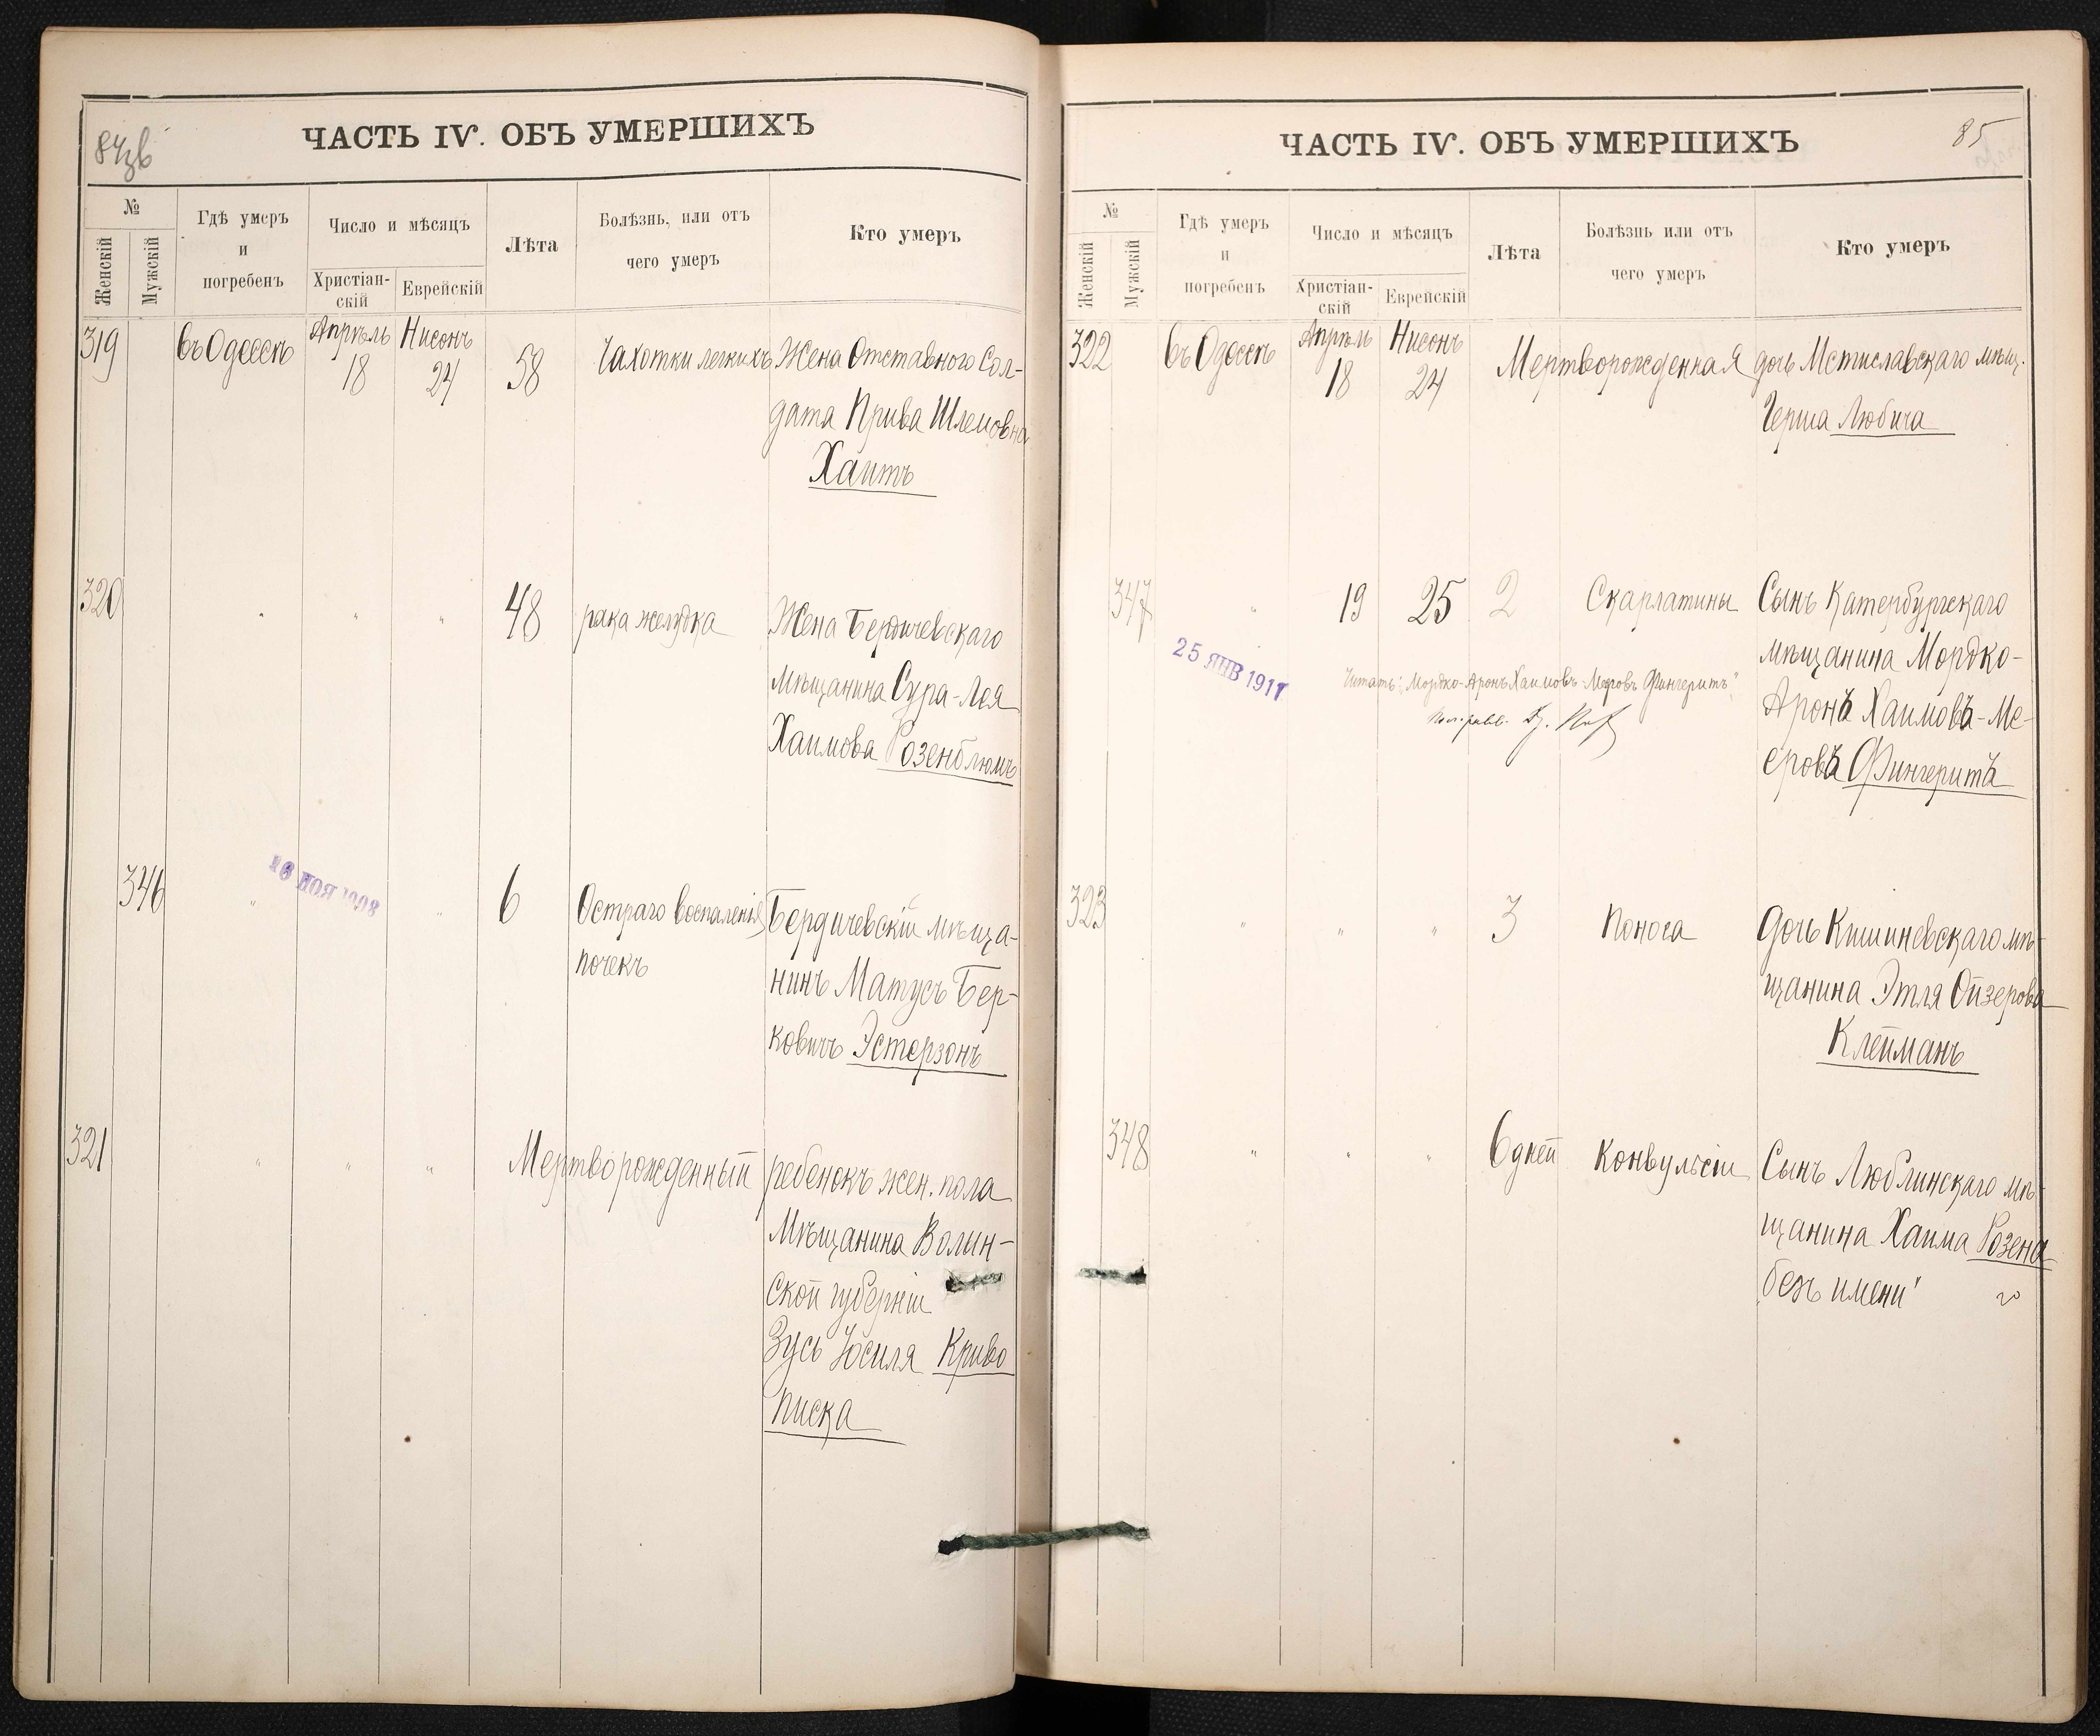 84 об
ЧАСТЬ IV. ОБЪ УМЕРШИХЪ
№
Женскій
Мужскій
Гдѣ умеръ
и
погребенъ
Число и мѣсяцъ
Христіан-
скій
Еврейскій
Лѣта
Болѣзнь, или отъ
чего умеръ
Кто умеръ
319 въ Одессѣ Апрѣль 18 Нисонъ 24 58 Чахотки легкихъ Жена Отставного Сол-
дата Прива Шлемовна
Хаитъ
320 " " " 48 рака желудка Жена Бердичевскаго
мѣщанина Сура-Лея
Хаимова Розенблюмъ
346 " " 6 Остраго воспаленія Бердичевскій мѣща-
почекъ нинъ Матусъ Бер-
ковичъ Эстерзонъ
НОЯ 1908
321 " " " Мертворожденный ребенокъ жен. пола
Мѣщанина Волын-
ской губерніи
Зусь Іосиля Криво
писка
85
ЧАСТЬ IV. ОБЪ УМЕРШИХЪ
№
Женскій
Мужскій
Гдѣ умеръ
и
погребенъ
Число и мѣсяцъ
Христіан-
скій
Еврейскій
Лѣта
Болѣзнь или отъ
чего умеръ
Кто умеръ
322 въ Одессѣ Апрѣль 18 Нисонъ 24 Мертворожденная дочь Мстиславскаго мѣщ.
Герша Любича
347 " 19 25 2 Скарлатины Сынъ Катербургскаго
мѣщанина Мордко-
Аронъ Хаимовъ-Ме-
еровъ Фингеритъ
25 ЯНВ 1911
Читать: „Мордко-Аронъ Хаимовъ-Меровъ Фингеритъ"
323 " " " 3 Поноса Дочь Кишиневскаго мѣ-
щанина Этля Ойзерова
Клейманъ
348 " " " 6 дней Конвульсіи Сынъ Люблинскаго мѣ-
щанина Хаима Розена
„безъ имени"